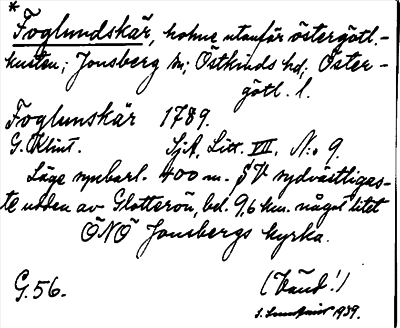 *
Foglundskär, holme utanför östergötl.-
kusten; Jonsberg sn; Östkinds hd; Öster-
götl. l.
Foglunskär 1789.
G. Klint. SjA, Litt. VIII, N:o 9.
Läge synbarl. 400 m. SV sydvästligas-
te udden av Glotterön, bel. 9,6 km. något litet
ÖNÖ Jonsbergs kyrka.
G. 56. (Vänd!)
1939.